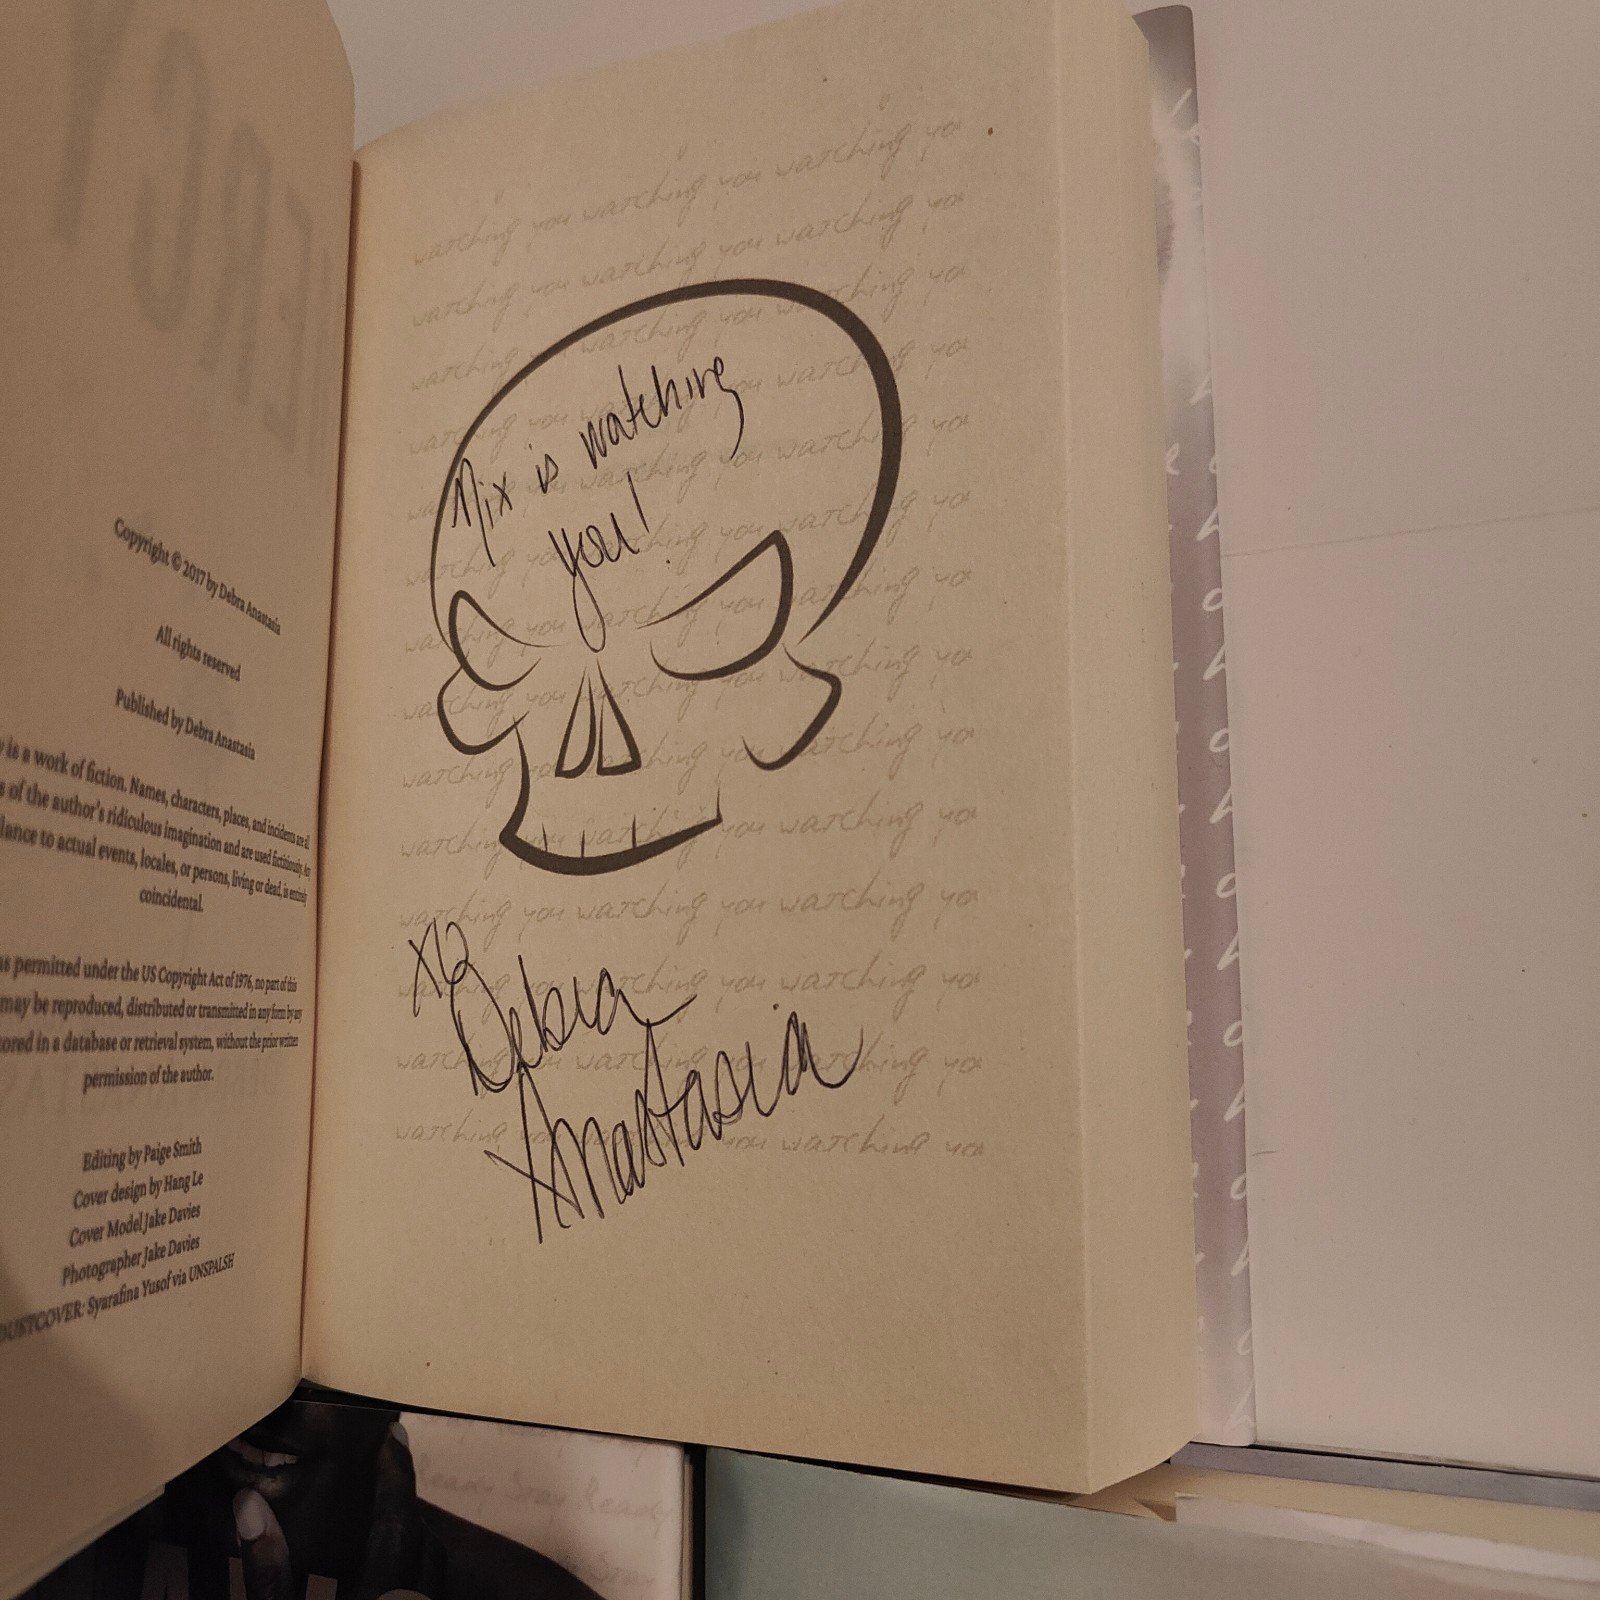 ERCY
Copyright © 2017 by Debra Anastasia
All rights reserved
Published by Debra Anastasia
is a work of fiction. Names, characters, places, and incidents are all
s of the author's ridiculous imagination and are used fictitiously. Any
lance to actual events, locales, or persons, living or dead, is entirely
coincidental.
as permitted under the US Copyright Act of 1976, no part of this
may be reproduced, distributed or transmitted in any form by any
tored in a database or retrieval system, without the prior written
permission of the author.
Editing by Paige Smith
Cover design by Hang Le
Cover Model Jake Davies
Photographer Jake Davies
DUSTCOVER: Syarafina Yusof via UNSPALSH
watching you watching you watching yo
watching you watching you watching yo
watching you watching you watching yo
watching you watching you watching yo
watching you watching you watching yo
watching you watching you watching yo
watching you watching you watching yo
watching you watching you watching yo
watching you watching you watching yo
watching you watching you watching yo
watching you watching you watching yo
watching you watching you watching yo
watching you watching you watching yo
watching you watching you watching yo
Nix is watching
you!
XO
Debra
Anastasia
Ready Stay Ready